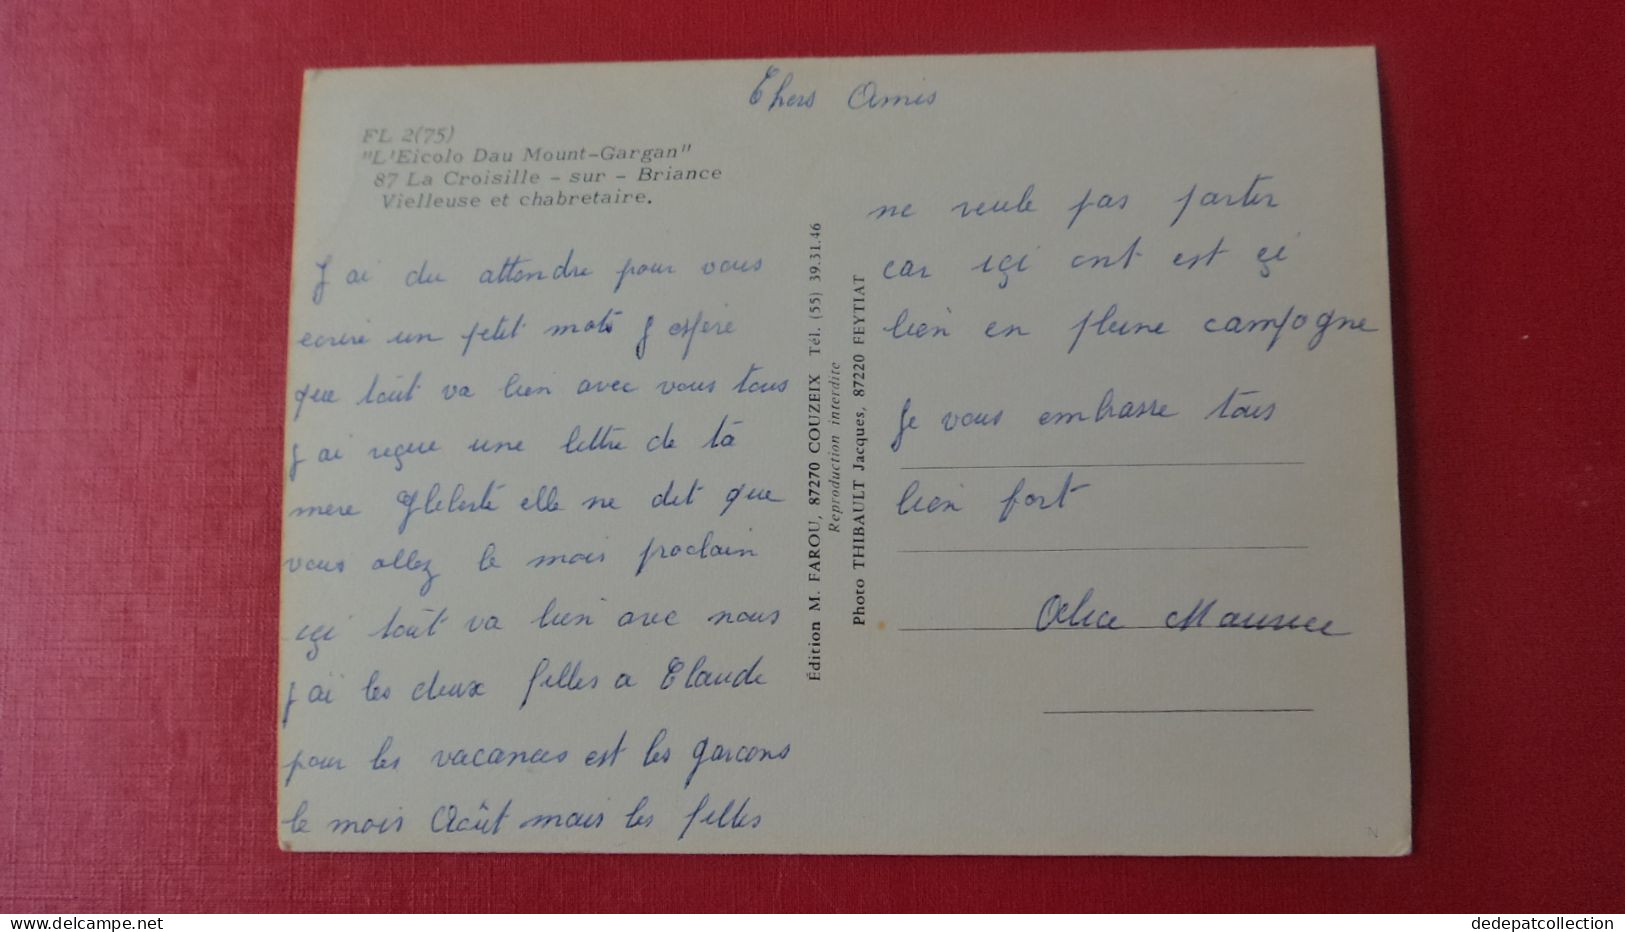 Chers Amis
FL 2(75)
"L'Eicolo Dau Mount-Gargan"
87 La Croisille - sur - Briance
Vielleuse et chabretaire.
J ai du attendre pour vous
ecrire un petit mots J espere
que tout va bien avec vous tous
J ai reçue une lettre de ta
mere elle ne dit que
vous allez le mois prochain
içi tout va bien avec nous
J ai les deux filles a Claude
pour les vacances est les garcons
le mois Août mais les filles
ne veule pas partir
car içi ont est çi
bien en pleine campogne
Je vous embrasse tous
bien fort
Alice Maurice
Édition M. FAROU, 87270 COUZEIX Tél. (55) 39.31.46
Reproduction interdite
Photo THIBAULT Jacques, 87220 FEYTIAT
delcampe.net
dedepatcollection